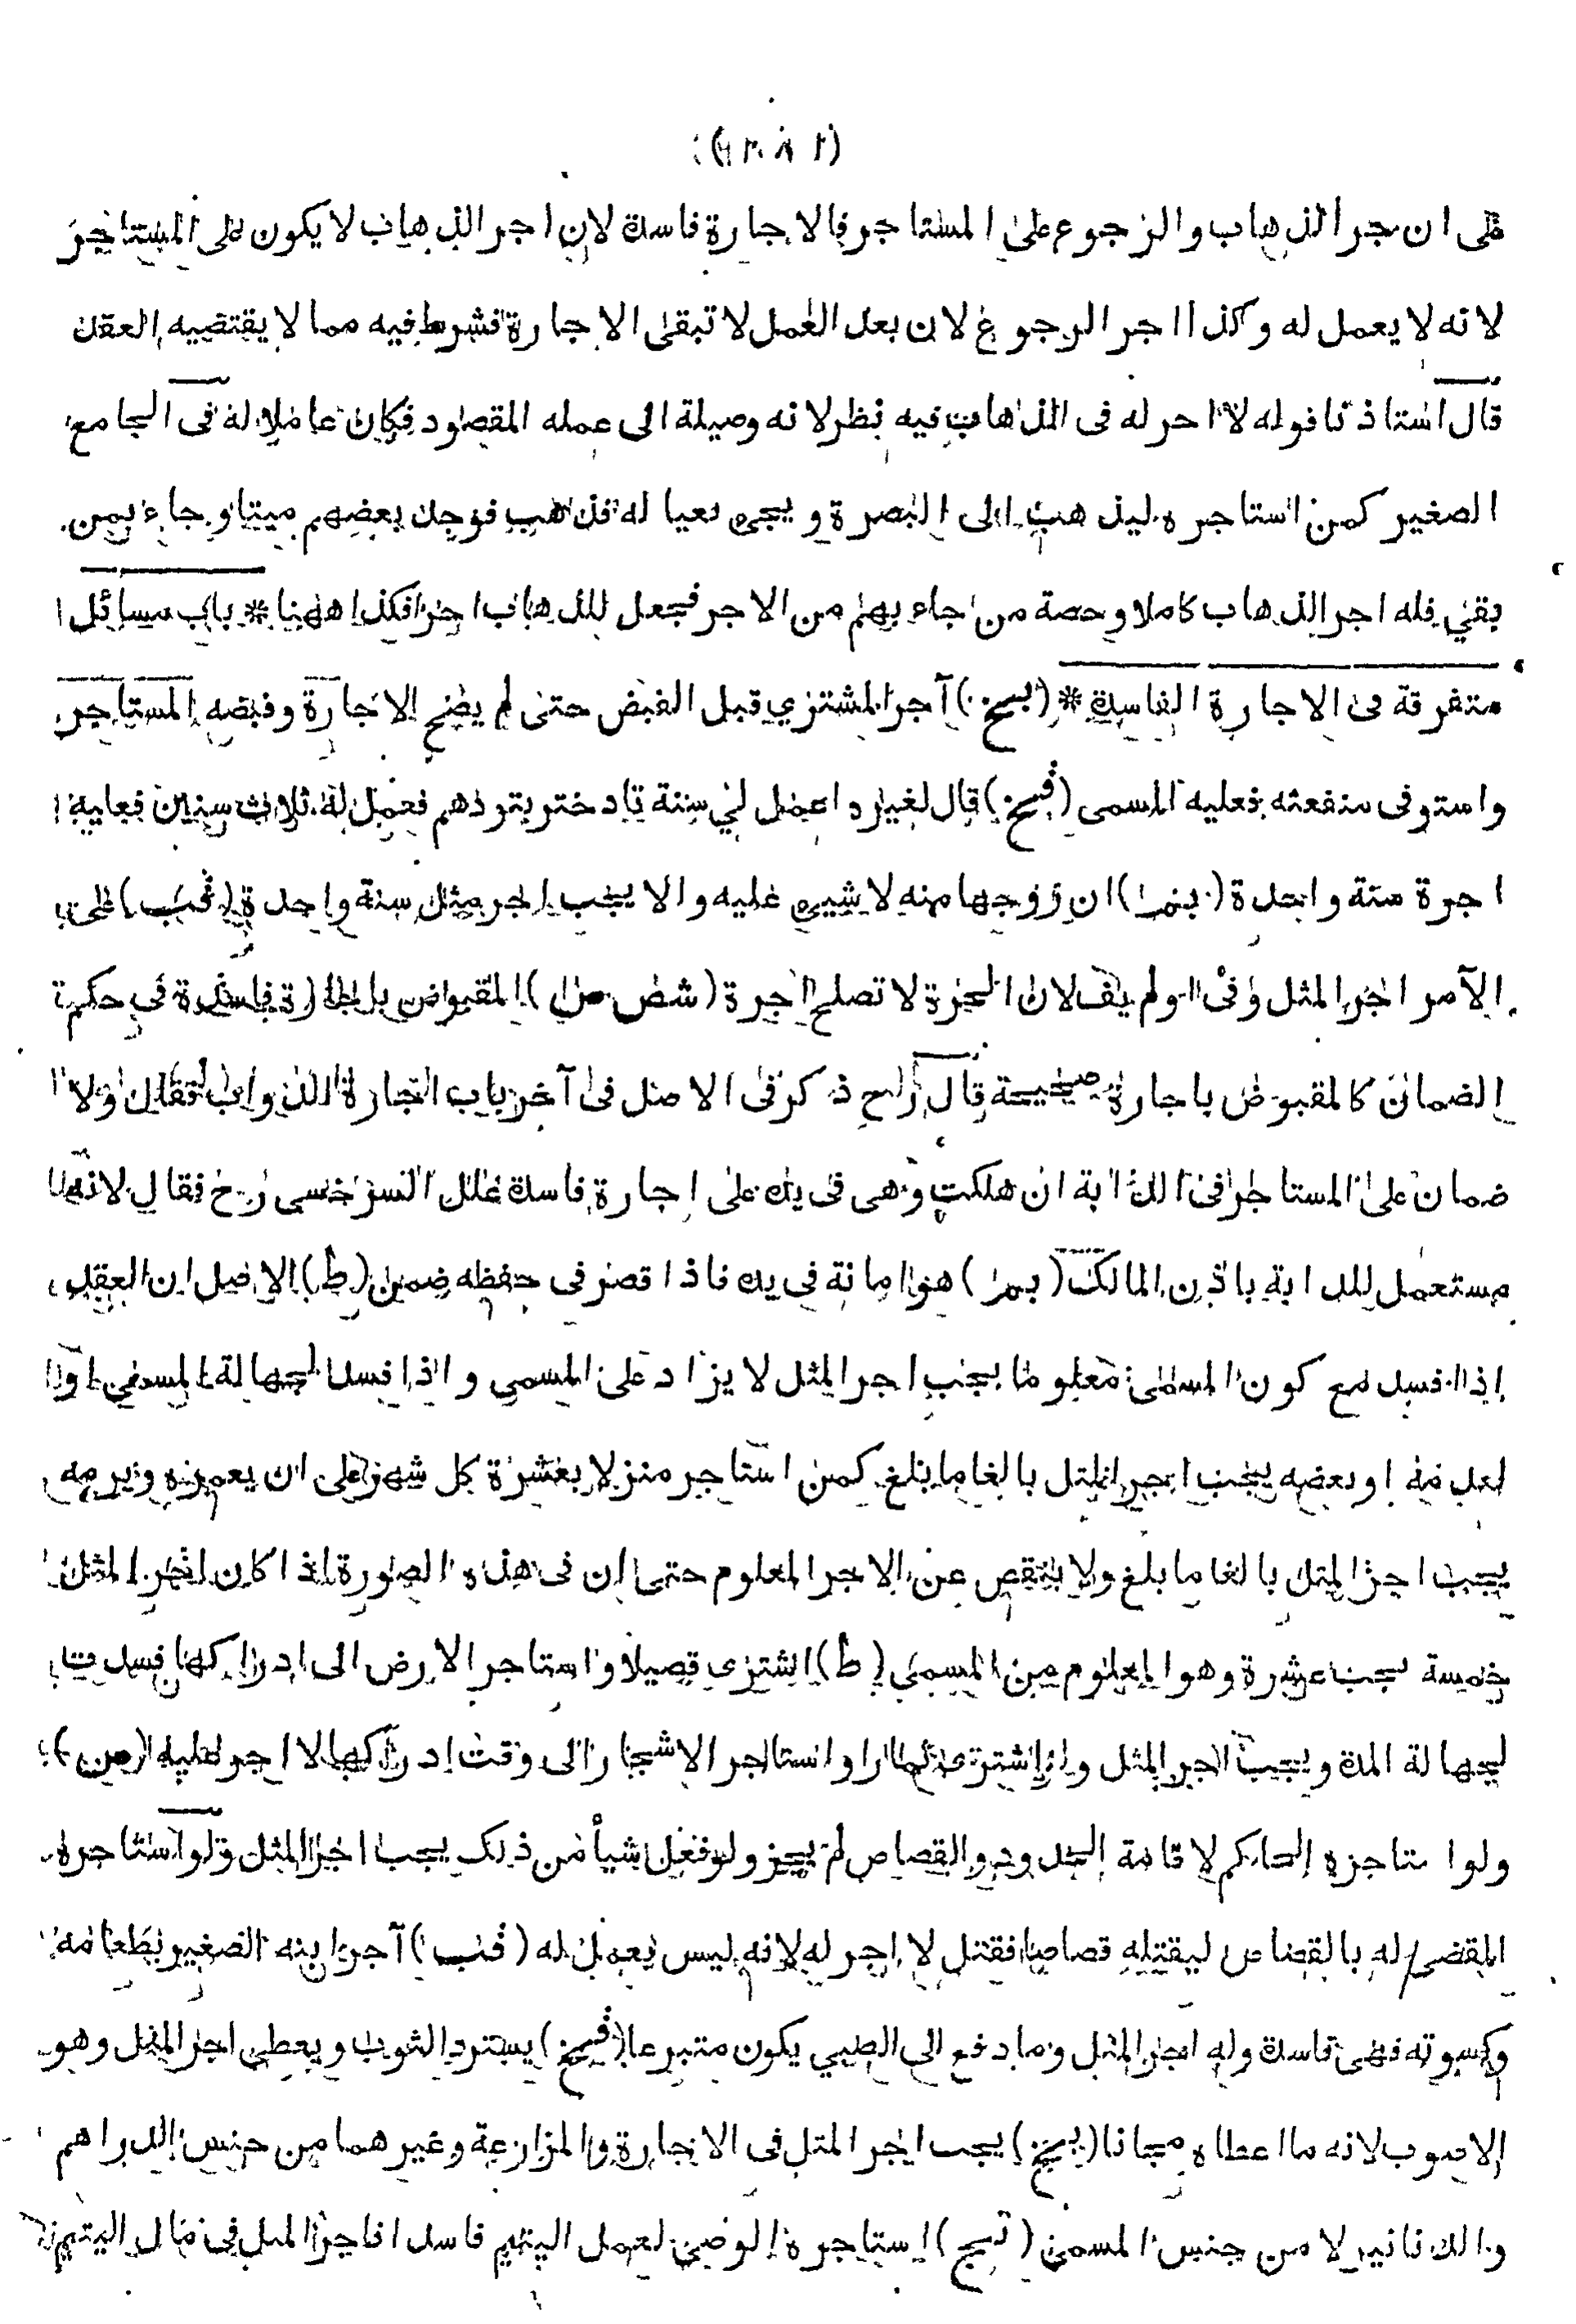 على ان اجر الذهاب والرجوع على المستاجر فالاجارة فاسدة لان اجر الذهاب لا يكون على المستاجر
لانه لا يعمل له وكذا اجر الرجوع لان بعد العمل لا تبقى الاجارة فشرط فيه مما لا يقتضيه العقد
قال استاذنا قوله لا اجر له فى الذهاب فيه نظر لانه وصيلة الى عمله المقصود فكان عاملا له فى الجامع
الصغير كمن استاجره ليذهب الى البصرة و يجىء بعياله فذهب فوجد بعضهم ميتا وجاء بمن
بقى فله اجر الذهاب كاملا وحصة من جاء بهم من الاجر فجعل للذهاب اجرا فكذا ههنا * باب مسائل
متفرقة فى الاجارة الفاسدة * (بمخ) آجر المشترى قبل القبض حتى لم يصح الاجارة وقبضه المستاجر
واستوفى منفعته فعليه المسمى (فمخ) قال لغيره اعمل لى سنة تا دختر بتو دهم فعمل له ثلاث سنين فعليه
اجرة سنة واحدة (بمرا) ان زوجها منه لا شيء عليه والا يجب اجر مثل سنة واحدة (قب) على
الآمر اجر المثل وفى او لم يف لان الحرة لا تصلح اجرة (شص) المقبوض باجارة فاسدة فى حكم
الضمان كالمقبوض باجارة صحيحة قال رح ذكر فى الاصل فى آخر باب اجارة الدواب فقال ولا
ضمان على المستاجر فى الدابة ان هلكت وهى فى يده على اجارة فاسدة علل السرخسى رح فقال لانه
مستعمل للدابة باذن المالك (بمرا) هو امانة فى يده فاذا قصر فى حفظه ضمن (ط) الاصل ان العقد
اذا فسد مع كون المسمى معلوما يجب اجر المثل لا يزاد على المسمى واذا فسد لجهالة المسمى او
لعدمه او بعضه يجب اجر المثل بالغا ما بلغ كمن استاجر منزلا بعشرة كل شهر على ان يعمره ويرمه
يجب اجر المثل بالغا ما بلغ ولا ينتقص عن الاجر المعلوم حتى ان فى هذه الصورة اذا كان اجر المثل
خمسة يجب عشرة وهو المعلوم من المسمى (ط) اشترى قصيلا واستاجر الارض الى ادراكها فسدت
لجهالة المدة ويجب اجر المثل ولو اشترى ثمارا واستاجر الاشجار الى وقت ادراكها لا اجر عليه (من)
ولو استاجره الحاكم لاقامة الحدود والقصاص لم يجز ولو فعل شيأ من ذلك يجب اجر المثل ولو استاجره
المقضى له بالقصاص ليقتله قصاصا فقتل لا اجر له لانه ليس يعمل له (قب) آجر ابنه الصغير بطعامه
وكسوته فهى فاسدة وله اجر المثل وما دفع الى الصبى يكون متبرعا (فمخ) يسترد الثوب ويعطى اجر المثل وهو
الاصوب لانه ما اعطاه مجانا (بمخ) يجب اجر المثل فى الاجارة والمزارعة وغيرهما من جنس الدراهم
والدنانير لا من جنس المسمى ( ) استاجره الوصى لعمل اليتيم فاسدا فاجر المثل فى مال اليتيم